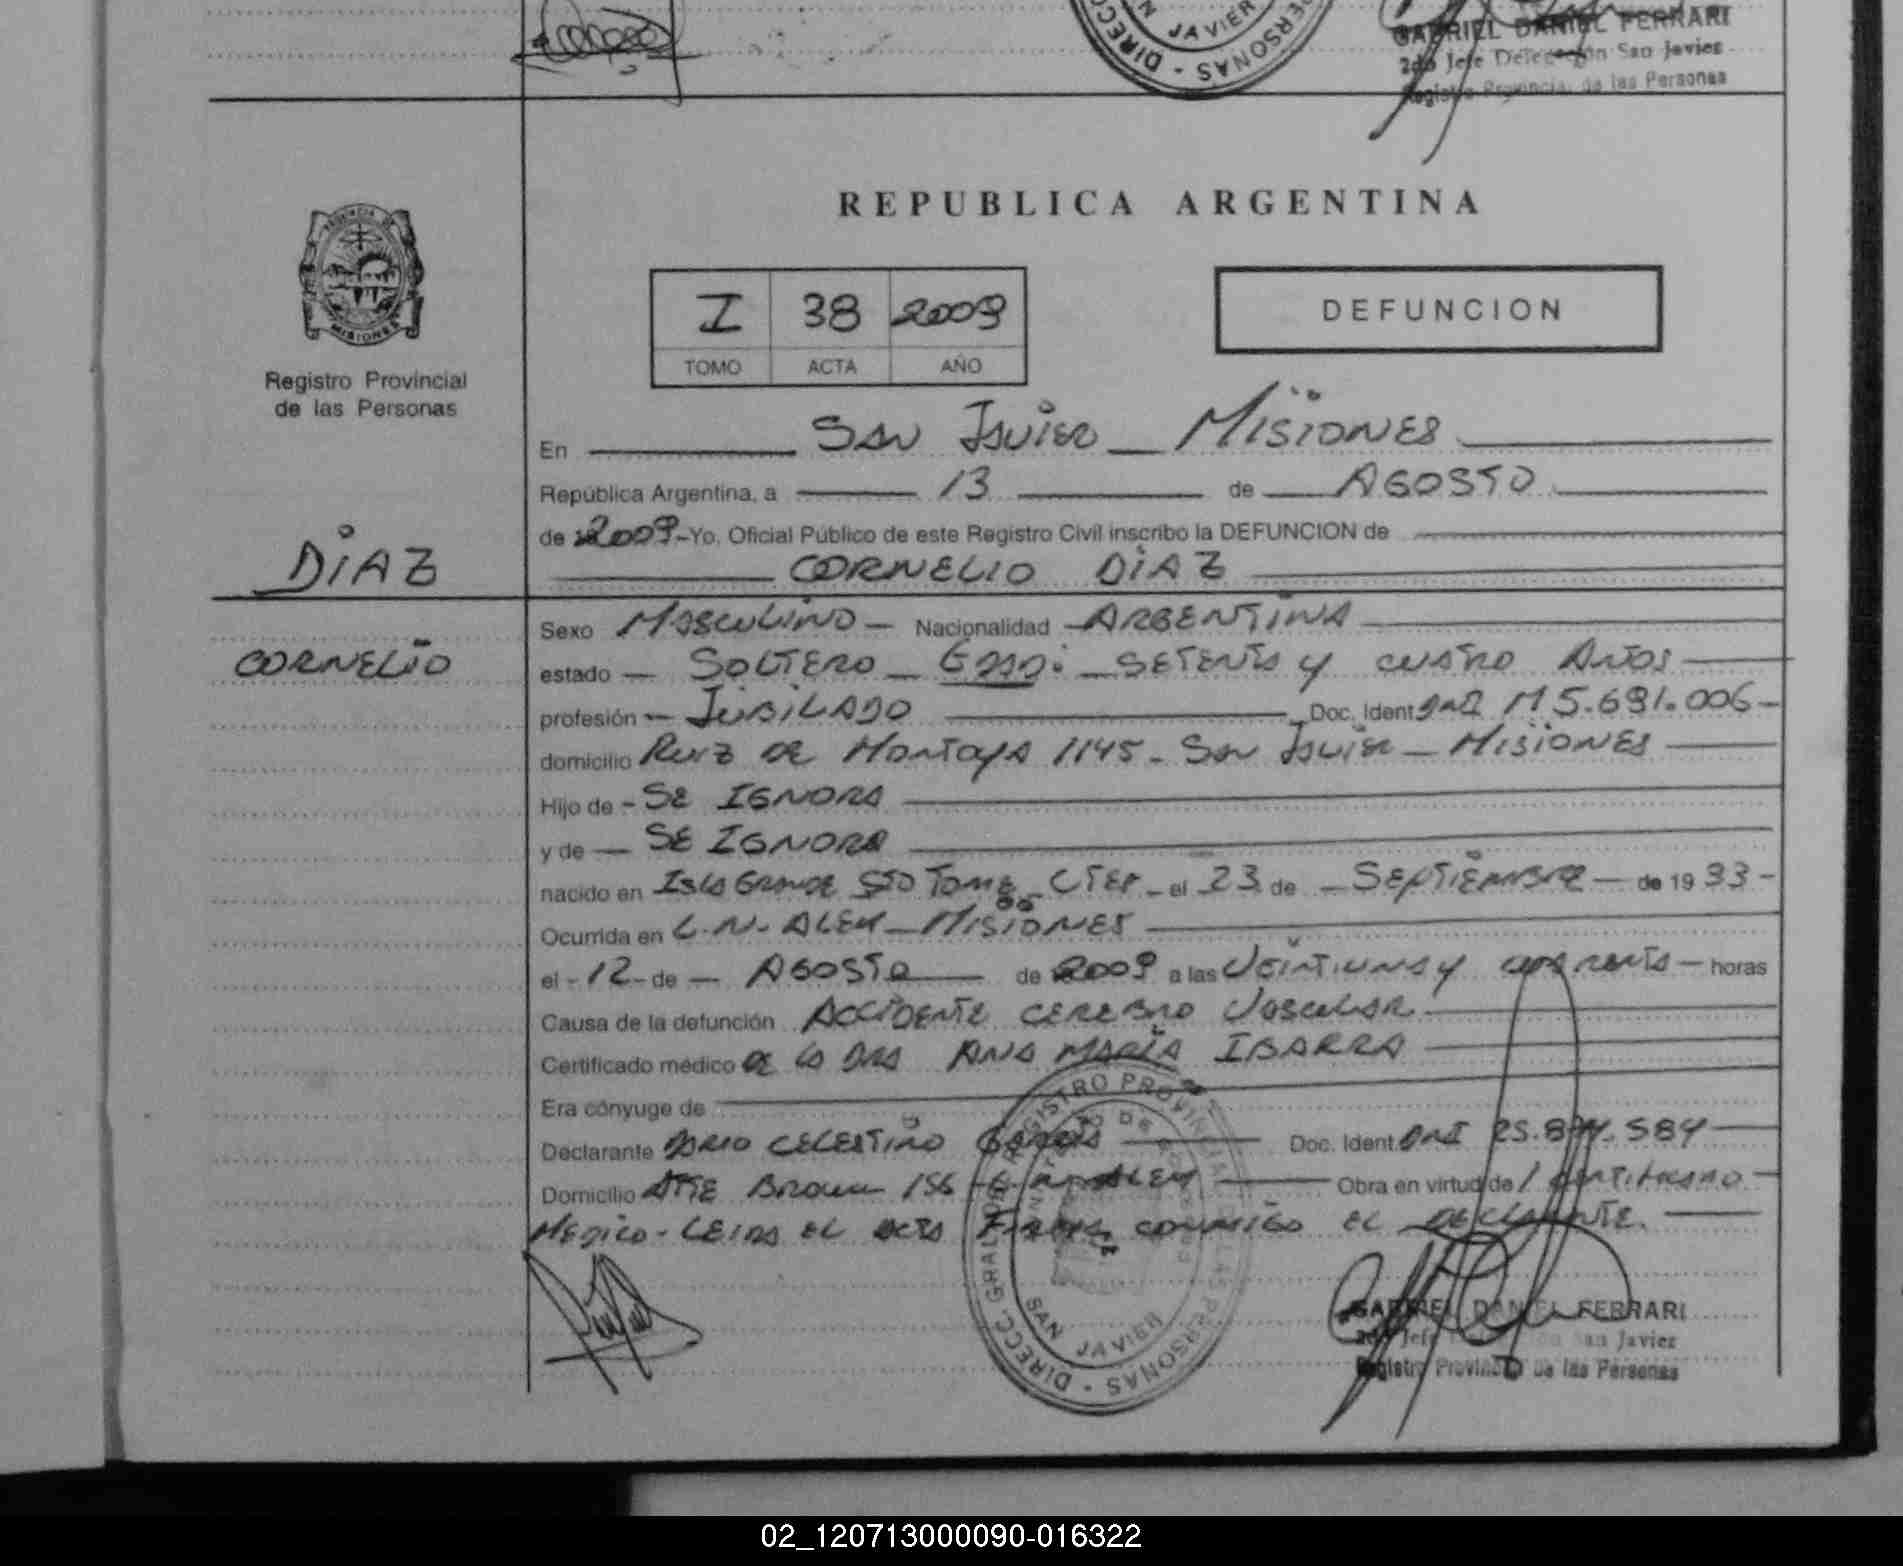 JAVIER
GABRIEL DANIEL FERRARI
2do Jefe Delegación San Javier
Registro Provincial de las Personas
REPUBLICA ARGENTINA
PROVINCIA DE
MISIONES
Registro Provincial
de las Personas
I 38 2009
TOMO ACTA AÑO
DEFUNCION
En SAN JAVIER MISIONES
República Argentina, a 13 de AGOSTO
de 2009 - Yo, Oficial Público de este Registro Civil inscribo la DEFUNCION de
DIAZ
CORNELIO DIAZ
Sexo MASCULINO - Nacionalidad - ARGENTINA
CORNELIO
estado - SOLTERO - EDAD: - SETENTA y CUATRO AÑOS
profesión - JUBILADO Doc. Ident. DNI M 5.691.006 -
domicilio RUIZ DE MONTOYA 1145 - SAN JAVIER - MISIONES
Hijo de - SE IGNORA
y de - SE IGNORA
nacido en ISLA GRANDE STO TOME - CTES - el 23 de - SEPTIEMBRE - de 19
Ocurrida en L.N. ALEM - MISIONES
el - 12 - de - AGOSTO de 2009 a las VEINTIUNA y CUARENTA - horas
Causa de la defunción ACCIDENTE CEREBRO VASCULAR
Certificado médico DE LA DRA ANA MARÍA IBARRA
Era cónyuge de
Declarante DARIO CELESTINO Doc. Ident. DNI
Domicilio ALTE BROWN 156 - L.N. ALEM Obra en virtud de 1 CERTIFICADO
MEDICO - LEIDA EL ACTA FIRMA CONMIGO EL DECLARANTE.
DIRECC. GRAL. DE REGISTRO PROVINCIAL DE LAS PERSONAS -
SAN JAVIER
GABRIEL DANIEL FERRARI
2do Jefe Delegación San Javier
Registro Provincial de las Personas
02_120713000090-016322